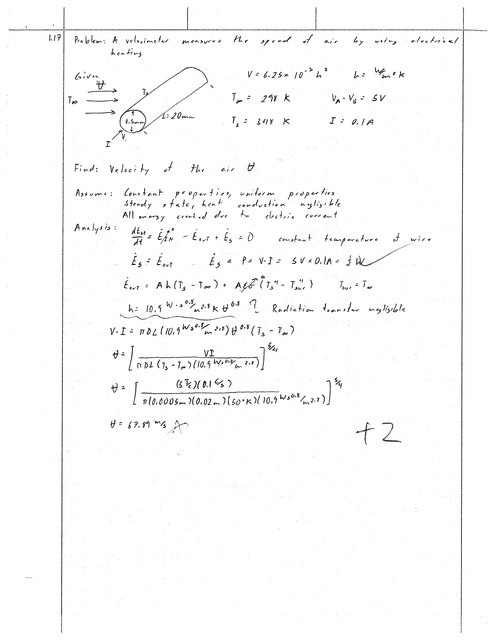 1.17 Problem: A velocimeter measures the speed of air by using electrical
heating
Given
T∞
Ts
0.5mm
L=20mm
I
V = 6.25 x 10⁻⁵ h² h = W/m²K
T∞ = 298 K VA - VB = 5V
Ts = 348 K I = 0.1A
Find: Velocity of the air V
Assume: Constant properties, uniform properties
Steady state, heat conduction neglisible
All energy created due to electric current
Analysis: dEst/dt = Ėin⁰ - Ėout + Ėg = 0 constant temperature of wire
Ėg = Ėout Ėg = P = V·I = 5V x 0.1A = ½ W
Ėout = Ah(Ts - T∞) + Aεσ⁰(Ts⁴ - Tsur⁴) Tsur = T∞
h = 10.9 W·s^0.8/m^2.8 K V^0.8 ? Radiation transfer neglisible
V·I = πDL(10.9 Ws^0.8/m^2.8) V^0.8 (Ts - T∞)
V = [VI / πDL(Ts - T∞)(10.9 Ws^0.8/m^2.8)]^5/4
V = [(5 J/C)(0.1 C/s) / π(0.0005m)(0.02m)(50°K)(10.9 Ws^0.8/m^2.8)]^5/4
V = 67.89 m/s
+2